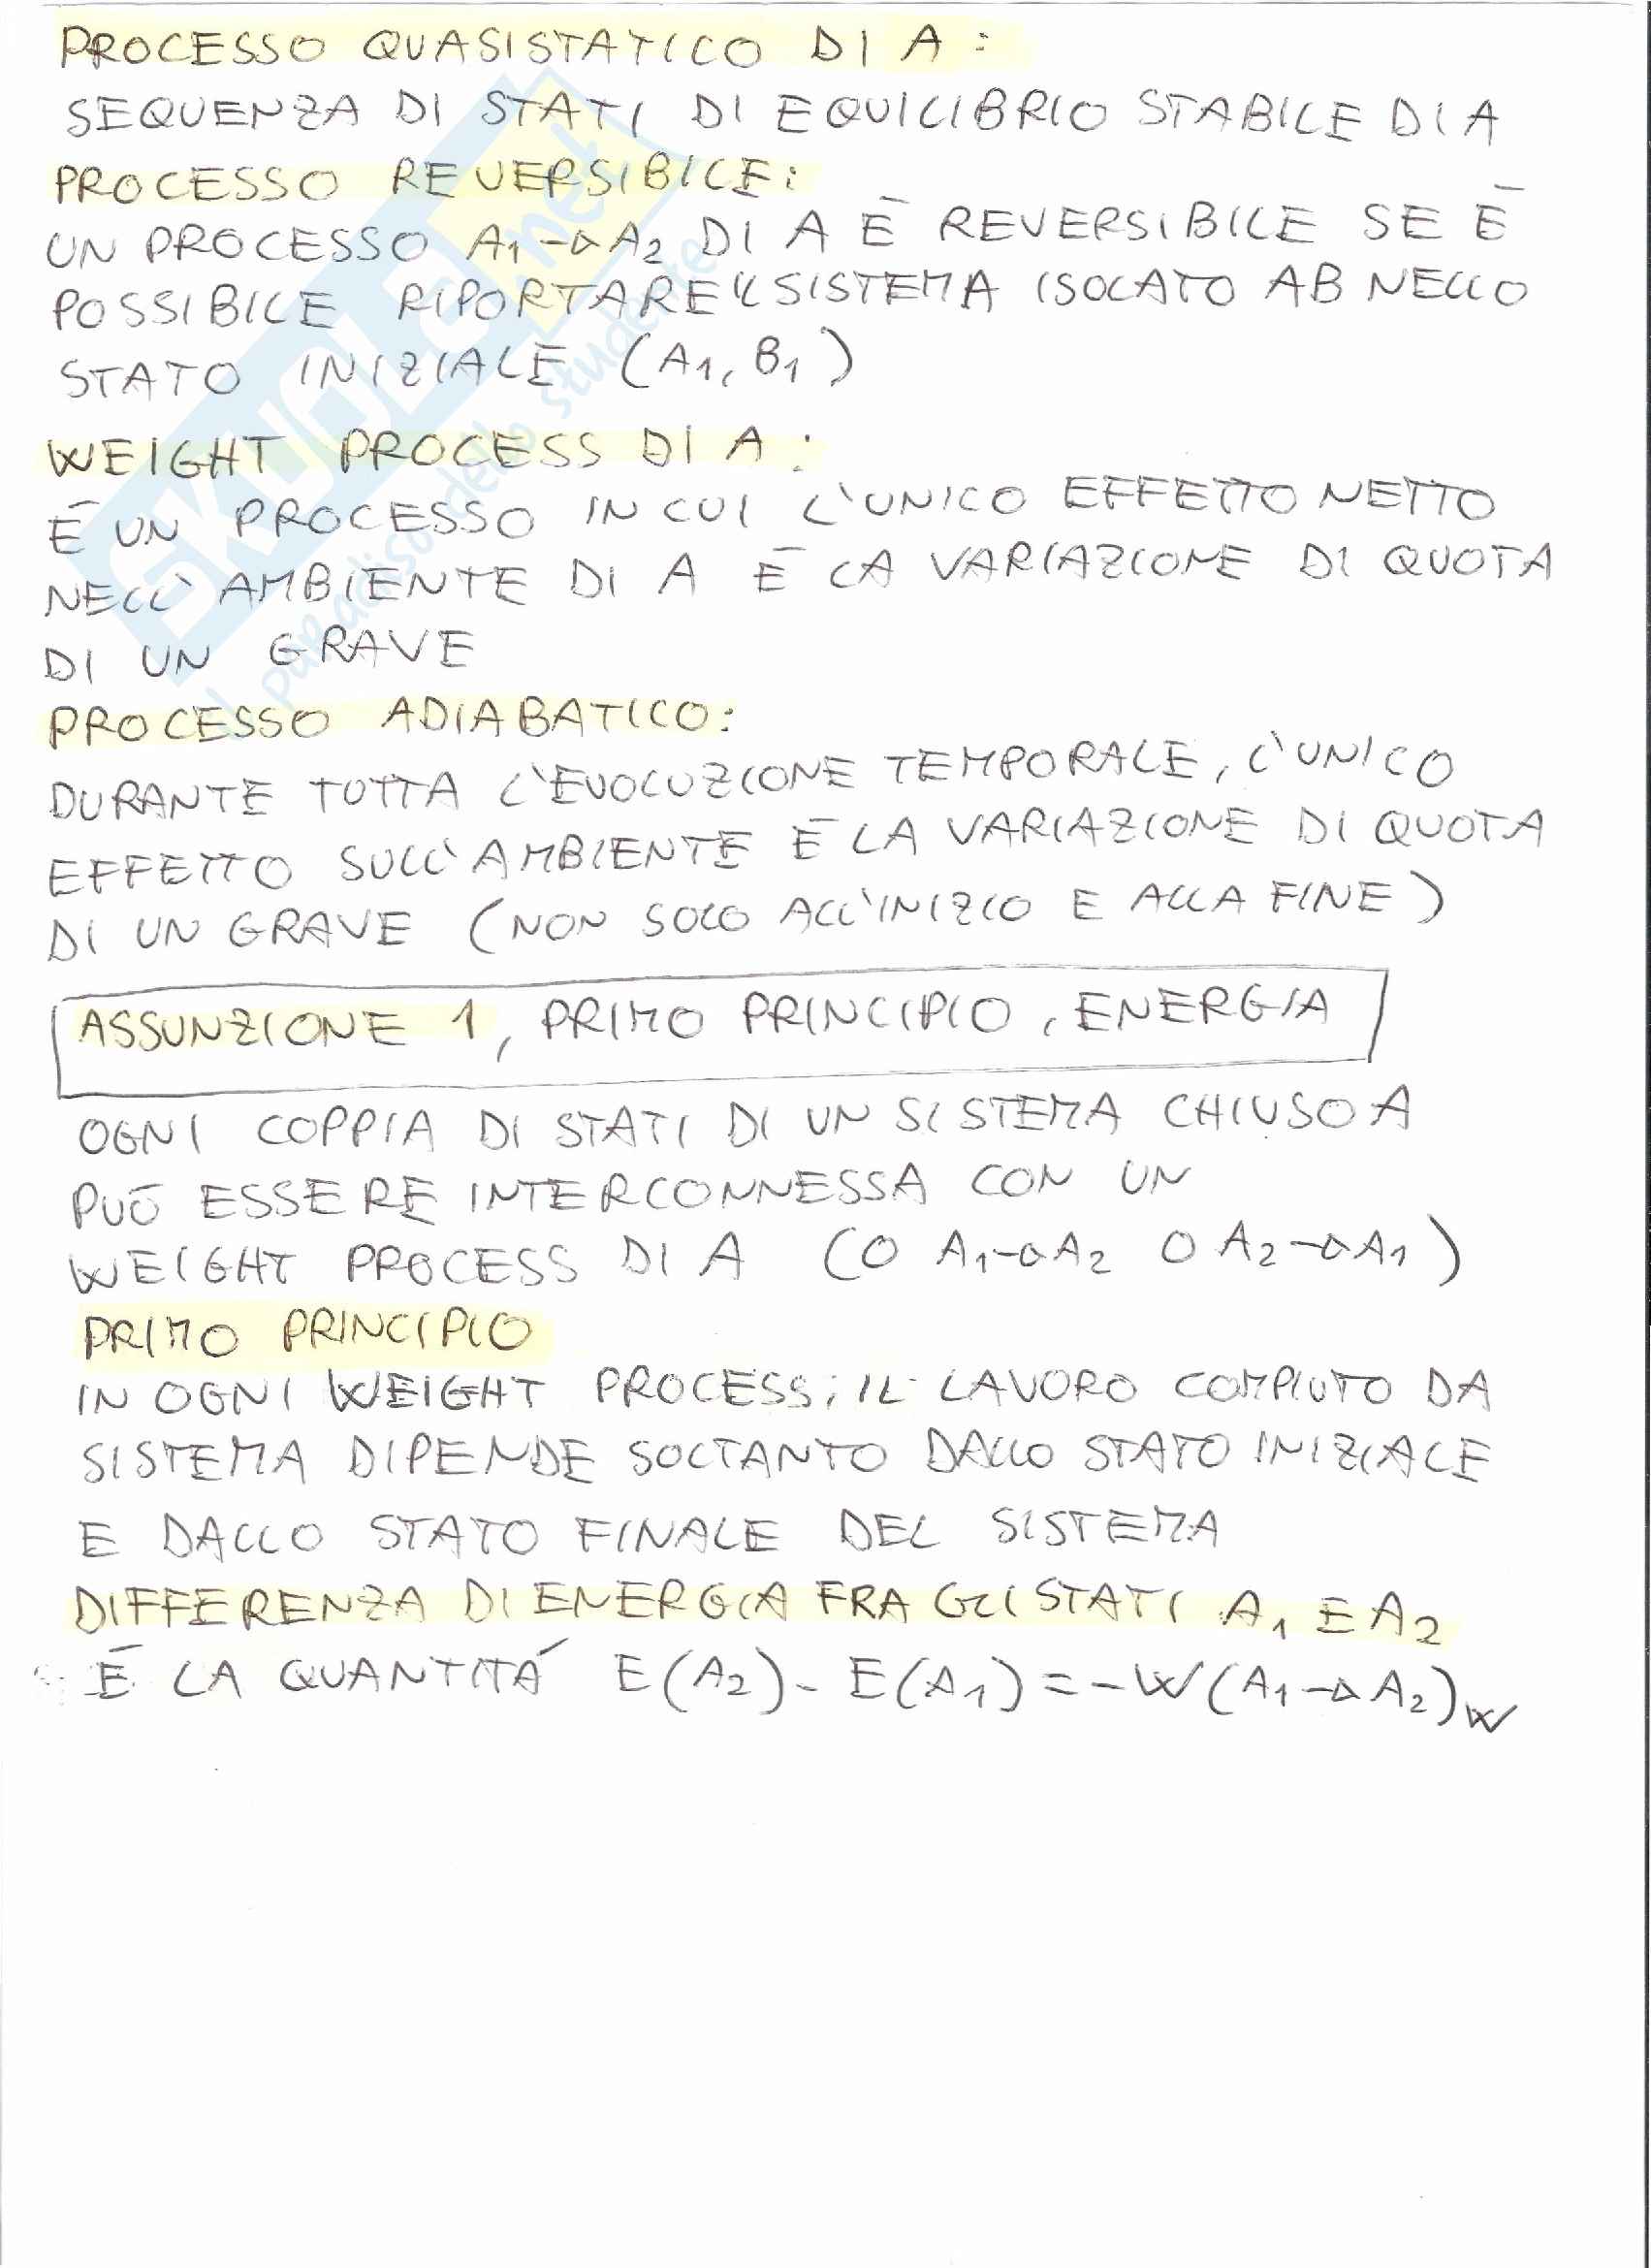 PROCESSO QUASISTATICO DI A :
SEQUENZA DI STATI DI EQUILIBRIO STABILE DI A
PROCESSO REVERSIBILE:
UN PROCESSO A₁→A₂ DI A È REVERSIBILE SE È
POSSIBILE RIPORTARE IL SISTEMA ISOLATO AB NELLO
STATO INIZIALE (A₁, B₁)
WEIGHT PROCESS DI A :
È UN PROCESSO IN CUI L'UNICO EFFETTO NETTO
NELL'AMBIENTE DI A È LA VARIAZIONE DI QUOTA
DI UN GRAVE
PROCESSO ADIABATICO:
DURANTE TUTTA L'EVOLUZIONE TEMPORALE, L'UNICO
EFFETTO SULL'AMBIENTE È LA VARIAZIONE DI QUOTA
DI UN GRAVE (NON SOLO ALL'INIZIO E ALLA FINE)
ASSUNZIONE 1, PRIMO PRINCIPIO, ENERGIA
OGNI COPPIA DI STATI DI UN SISTEMA CHIUSO A
PUÒ ESSERE INTERCONNESSA CON UN
WEIGHT PROCESS DI A (O A₁→A₂ O A₂→A₁)
PRIMO PRINCIPIO
IN OGNI WEIGHT PROCESS; IL LAVORO COMPIUTO DA
SISTEMA DIPENDE SOLTANTO DALLO STATO INIZIALE
E DALLO STATO FINALE DEL SISTEMA
DIFFERENZA DI ENERGIA FRA GLI STATI A₁ E A₂
È LA QUANTITÁ E(A₂) - E(A₁) = -W(A₁→A₂)w
SKUOLA.net
il paradiso dello studente